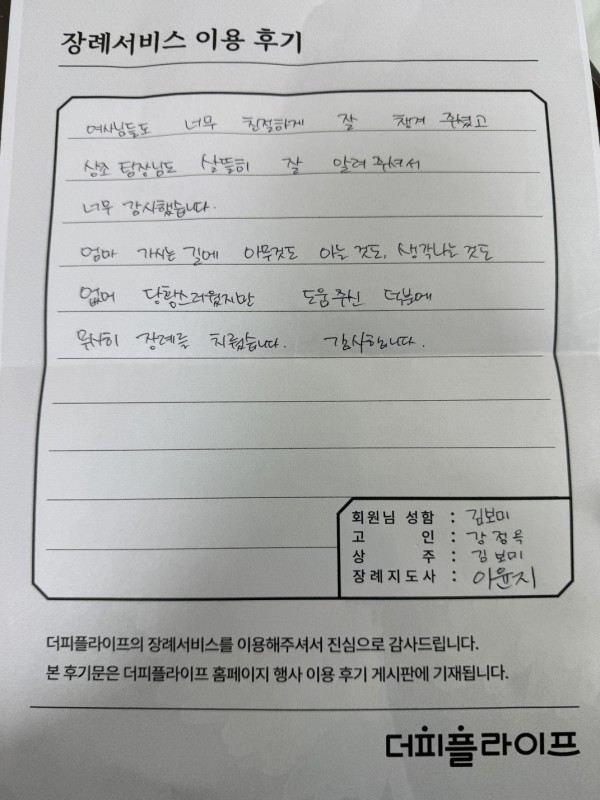 장례서비스 이용 후기
여사님들도 너무 친절하게 잘 챙겨 주셨고
상조 팀장님도 살뜰히 잘 알려 주셔서
너무 감사했습니다.
엄마 가시는 길에 아무것도 아는 것도, 생각나는 것도
없어 당황스러웠지만 도움주신 덕분에
무사히 장례를 치뤘습니다. 감사합니다.
회원님 성함 : 김보미
고 인 : 강정옥
상 주 : 김보미
장례지도사 : 이윤지
더피플라이프의 장례서비스를 이용해주셔서 진심으로 감사드립니다.
본 후기문은 더피플라이프 홈페이지 행사 이용 후기 게시판에 기재됩니다.
더피플라이프